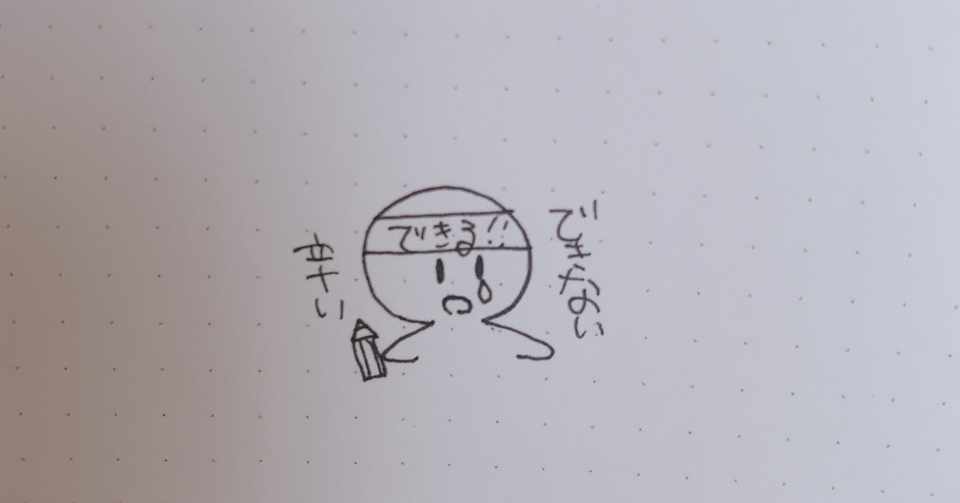 できる!!
できない
辛い